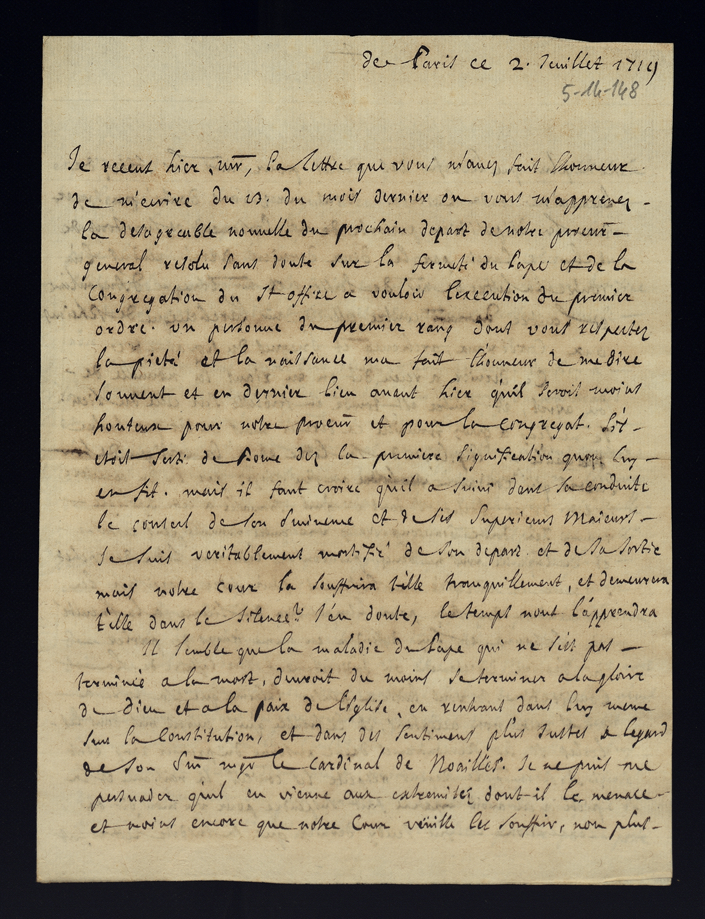 de Paris ce 2. Juillet 1719
5-14-148
Je receut hier, mr, la lettre que vous m'avez fait lhonneur
de m'ecrire du 13. du mois dernier ou vous m'apprenez
la desagreable nouvelle du prochain depart de notre procur
general resolu sans doute sur la fermeté du Pape et de la
Congregation du St office a vouloir lexecution du premier
ordre. un personne du premier rang dont vous respectez
la pieté et la naissance ma fait lhonneur de me dire
souvent et en dernier lieu avant hier quil seroit moins
honteux pour notre procur et pour la congregat. s'il
etoit sorti de Rome dez la premiere signification quon luy
en fit. mais il faut croire quil a suivi dans sa conduite
le conseil de son Eminence et de ses superieurs Majeurs
Je suis veritablement mortifié de son depart et de sa sortie
mais notre cour la souffrira t'elle tranquillement, et demeurera
t'elle dans le silence? J'en doute, le temps nous l'apprendra
Il semble que la maladie du Pape qui ne s'est pas
terminée a la mort, devroit du moins se terminer a la gloire
de Dieu et a la paix de l'Eglise, en rentrant dans luy meme
sur la Constitution, et dans des sentiments plus justes a legard
de son le Cardinal de Noailles. Je ne puis me
persuader quil en vienne aux extremitez dont il le menace
et moins encore que notre Cour veuille les souffrir, non plus